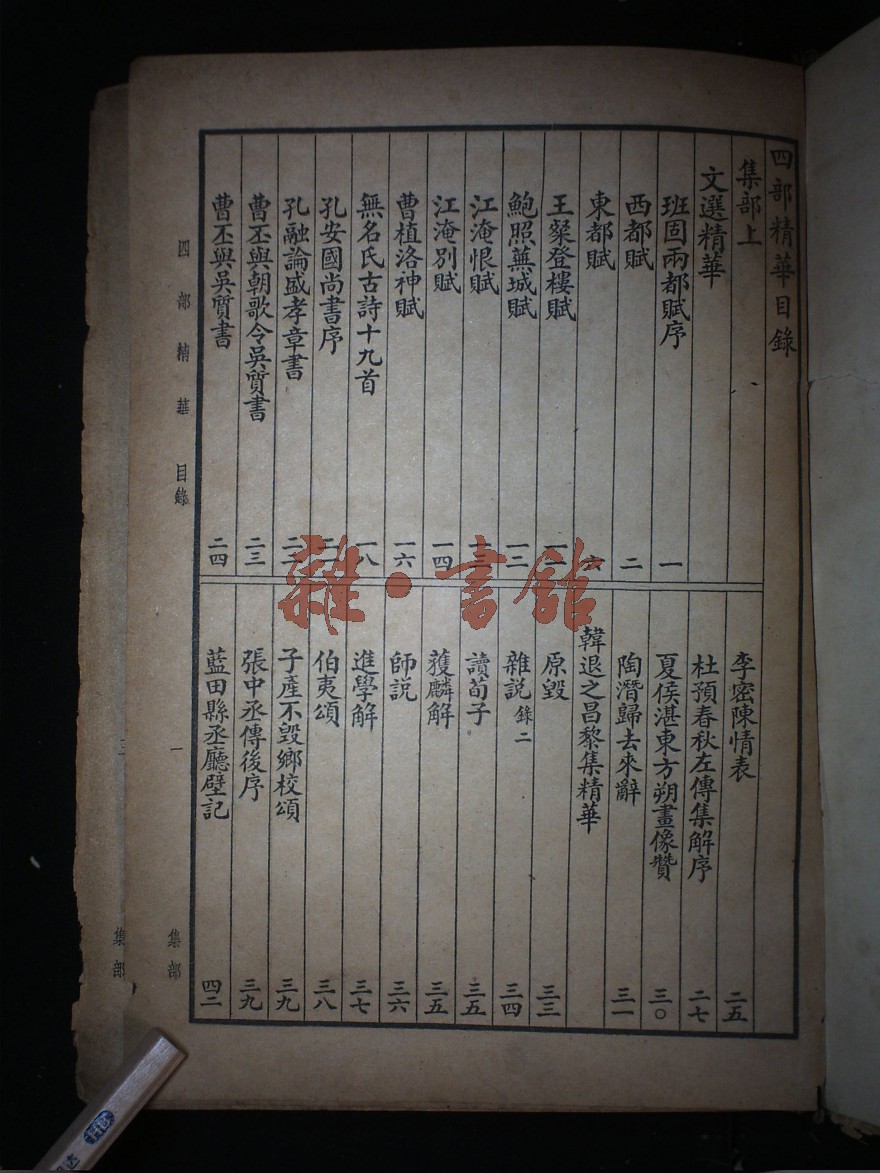 四部精華目錄
集部上
文選精華
班固兩都賦序 一
西都賦 二
東都賦 六
王粲登樓賦
鮑照蕪城賦 一二
江淹恨賦
江淹別賦 一四
曹植洛神賦 一六
無名氏古詩十九首 一八
孔安國尚書序
孔融論盛孝章書
曹丕與朝歌令吳質書 二三
曹丕與吳質書 二四
李密陳情表 二五
杜預春秋左傳集解序 二七
夏侯湛東方朔畫像贊 三〇
陶潛歸去來辭 三一
韓退之昌黎集精華
原毀 三三
雜說 錄二 三四
讀荀子 三五
獲麟解 三五
師說 三六
進學解 三七
伯夷頌 三八
子產不毀鄉校頌 三九
張中丞傳後序 三九
藍田縣丞廳壁記 四二
四部精華 目錄 一 集部
集部
雜·書館